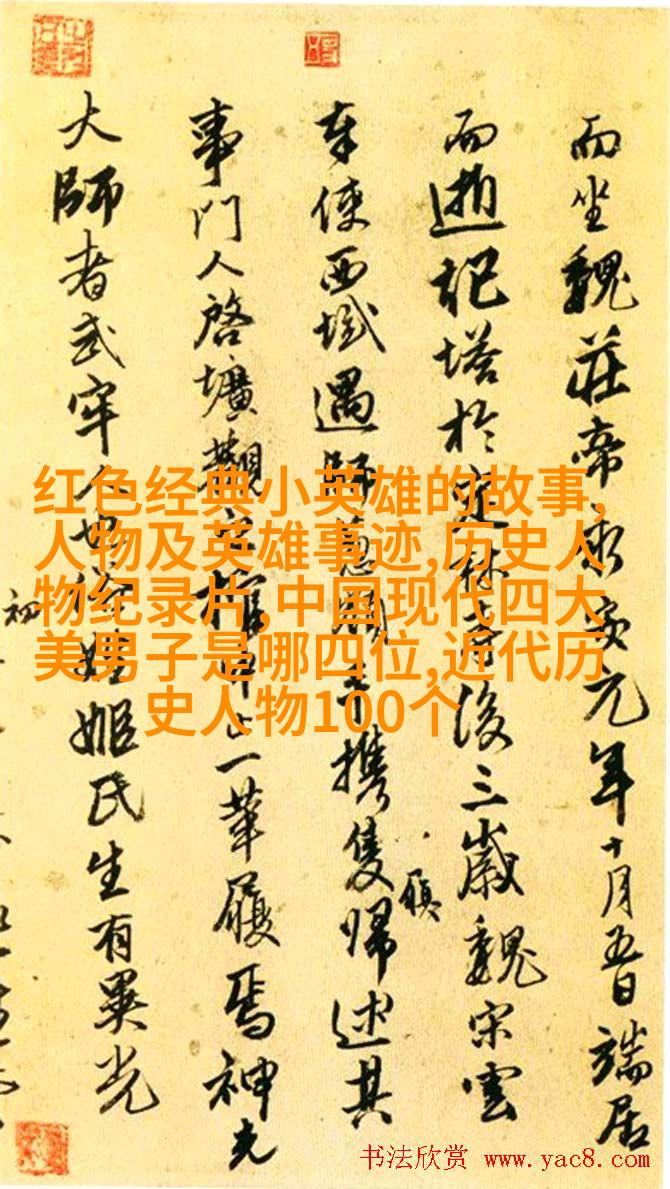 而坐魏莊帝永安元年十月五日端居
而逝塔於定林寺後三歲魏宋雲
奉使西域遇師葱嶺手携隻歸述其
履
事門人啓壙觀空棺止一革履焉神光
大師者武牢人也俗姓姬氏生有異光
初
红色经典小英雄的故事,
人物及英雄事迹,历史人
物纪录片,中国现代四大
美男子是哪四位,近代历
史人物100个
书法欣赏 www.yac8.com